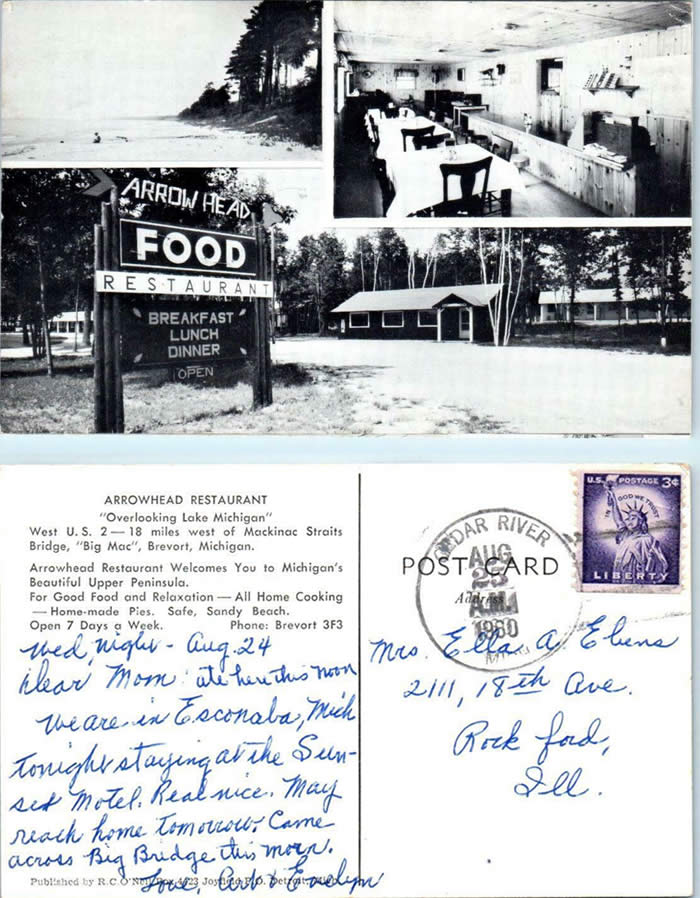 ARROW HEAD
FOOD
RESTAURANT
BREAKFAST
LUNCH
DINNER
OPEN
ARROWHEAD RESTAURANT
"Overlooking Lake Michigan"
West U.S. 2 — 18 miles west of Mackinac Straits
Bridge, "Big Mac", Brevort, Michigan.
Arrowhead Restaurant Welcomes You to Michigan's
Beautiful Upper Peninsula.
For Good Food and Relaxation — All Home Cooking
— Home-made Pies. Safe, Sandy Beach.
Open 7 Days a Week. Phone: Brevort 3F3
Wed, night - Aug. 24
Dear Mom: ate here this noon
We are in Esconaba, Mich
tonight staying at the Sun-
set Motel. Real nice. May
reach home tomorrow. Came
across Big Bridge this morn.
Love, Art & Evelyn
Published by R.C. O'Neil Box 4623 Joyfield P.O. Detroit, Mich.
CEDAR RIVER
AUG
25
A.M.
1960
MICH.
POST CARD
Address
U.S. POSTAGE 3¢
IN GOD WE TRUST
LIBERTY
Mrs. Ella A. Ebens
2111, 18th Ave.
Rock ford,
Ill.